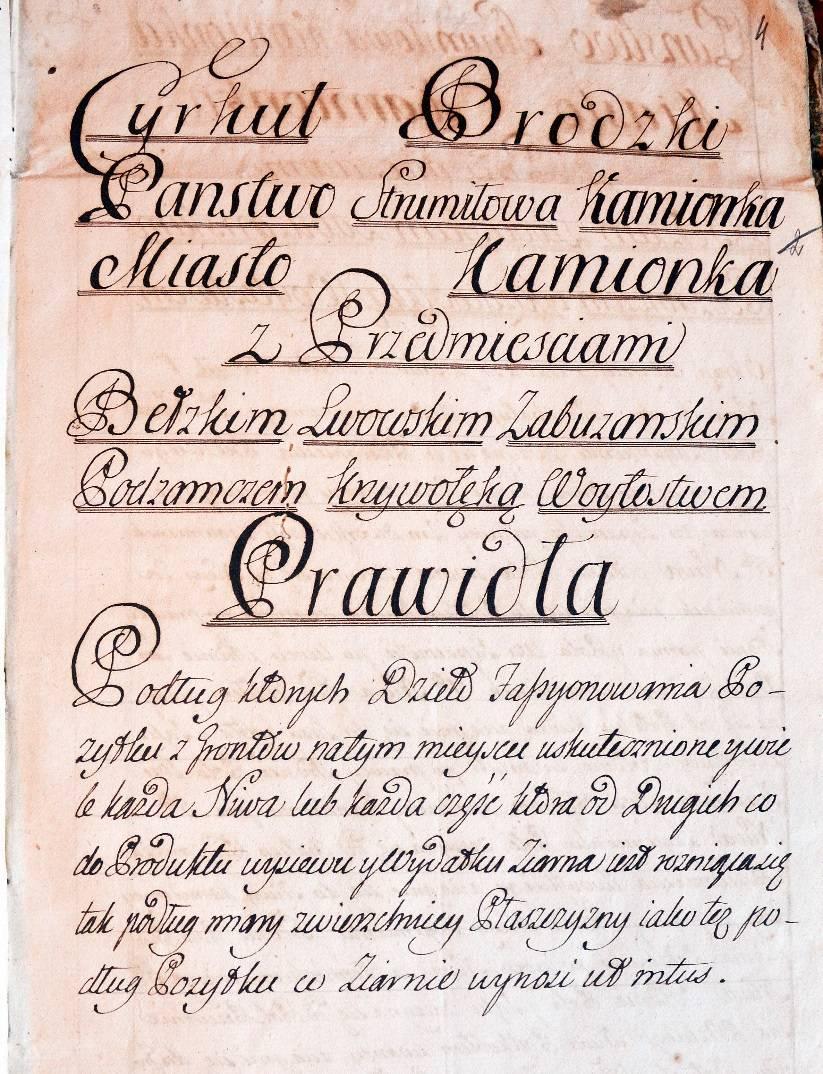 4
Cyrkuł Brodzki
Panstwo Strumiłowa Kamionka
Miasto Kamionka
z Przedmiesciami
Bełzkim Lwowskim Zabuzanskim
Podzamczem Krzywołęką Woytostwem
Prawidła
Podług ktorych Dzieło Fassyonowania Po-
zytku z Grontow natym mieyscu uskutecznione y wie
le każda Niwa lub każda część ktora od Drugich co
do Produktu wysiewu y Wydatku Ziarna iest rozniąca się
tak podług miary zwierzchniey Płaszczyzny iako też po-
dług Pozytku w Ziarnie wynosi ut intus.